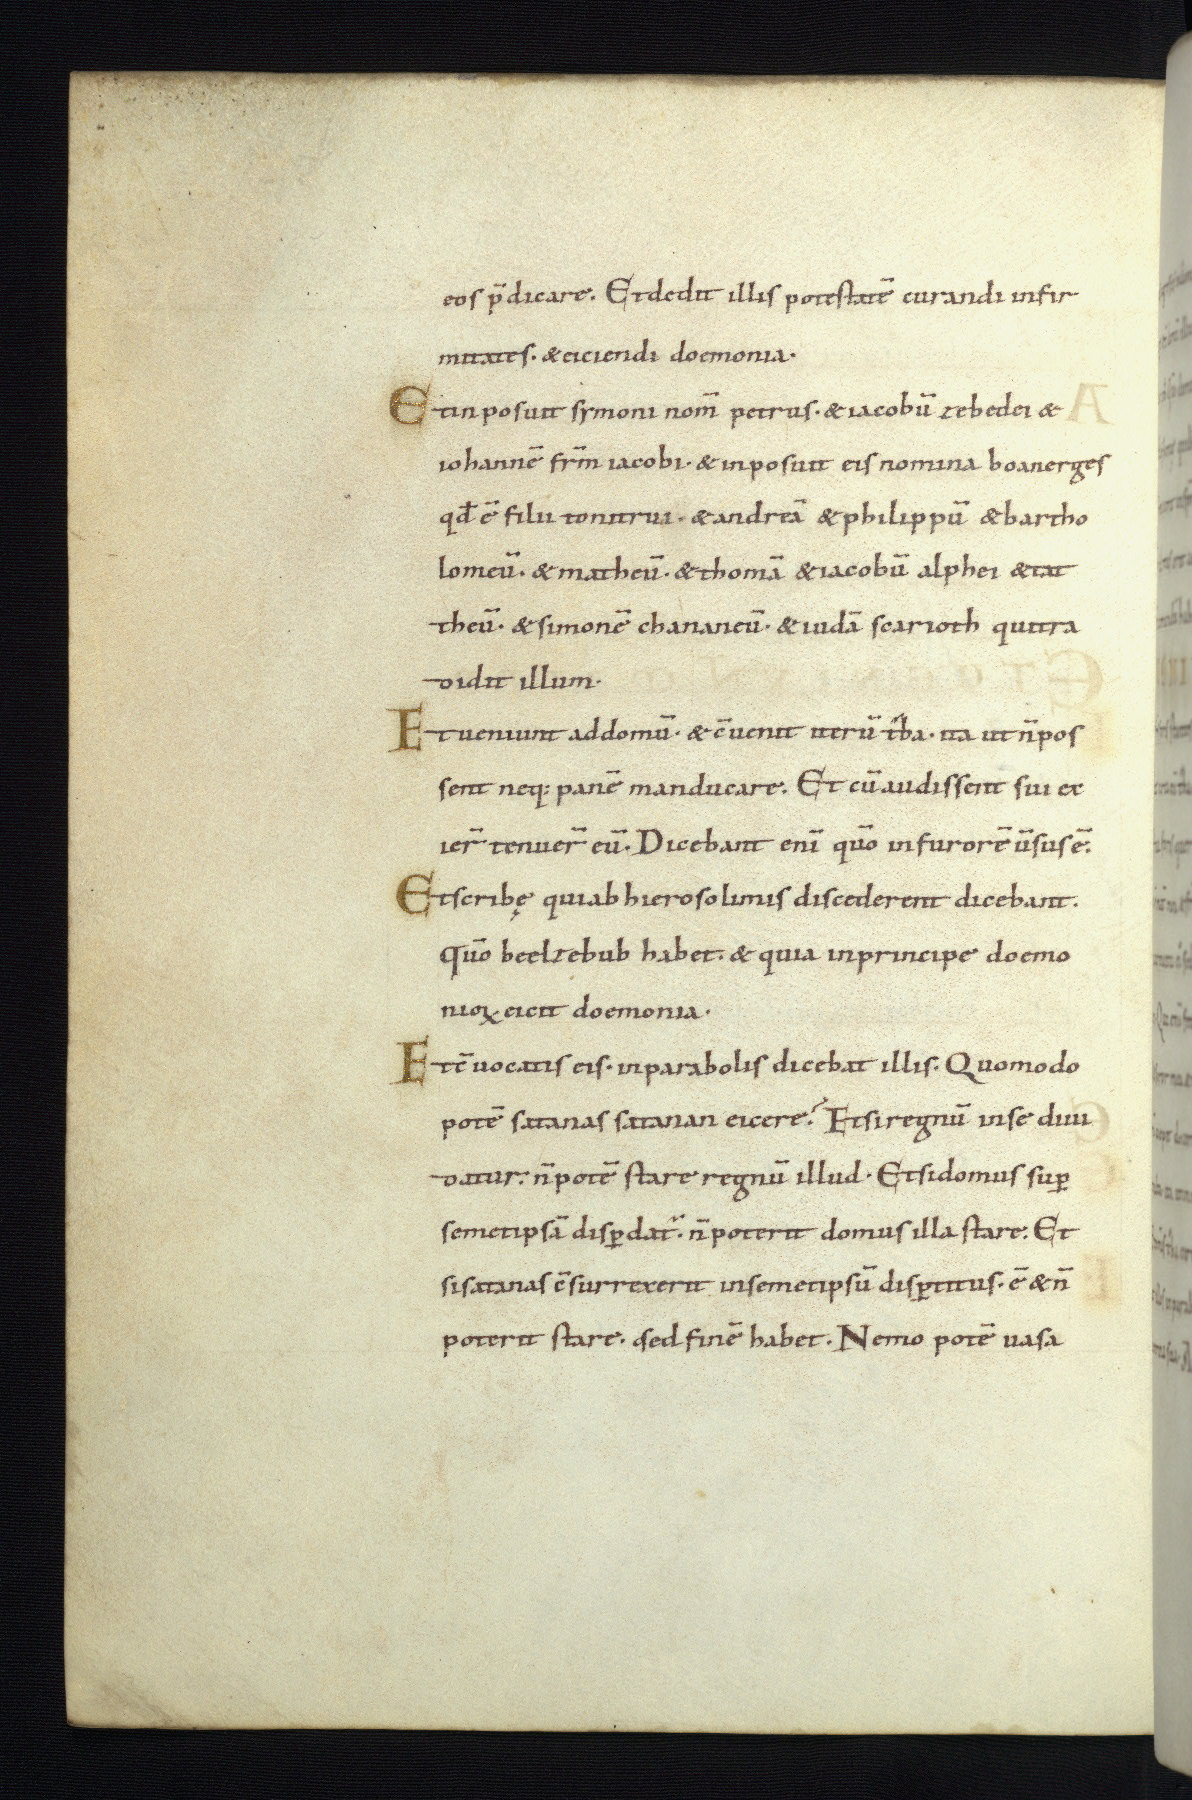 eos p̄dicare. Et dedit illis potestatē curandi infir
mitates. & eiciendi doemonia.
Et inposuit symoni nom̄ petrus. & iacobū zebedei &
iohannē frm̄ iacobi. & inposuit eis nomina boanerges
qđ ē filii tonitrui. & andreā & philippū & bartho
lomeū. & matheū. & thomā & iacobū alphei & tat
theū. & simonē chananeū. & iudā scarioth qui tra
didit illum.
Et ueniunt ad domū. & c̄uenit iterū t̄ba. ita ut n̄ pos
sent neq; panē manducare. Et cū audissent sui ex
ier̄ tenuer̄ eū. Dicebant enī quō in furorē ūsus ē.
Et scribę qui ab hierosolimis discederent dicebant.
Quō beelzebub habet. & quia in principe doemo
nioꝝ eicit doemonia.
Et c̄uocatis eis. in parabolis dicebat illis. Quomodo
potē satanas satanan eicere? Et si regnū in se diui
datur. n̄ potē stare regnū illud. Et si domus suꝑ
semetipsā disꝑdat᷑. n̄ poterit domus illa stare. Et
si satanas c̄surrexerit in semetipsū disꝑtitus. ē & n̄
poterit stare. sed finē habet. Nemo potē uasa